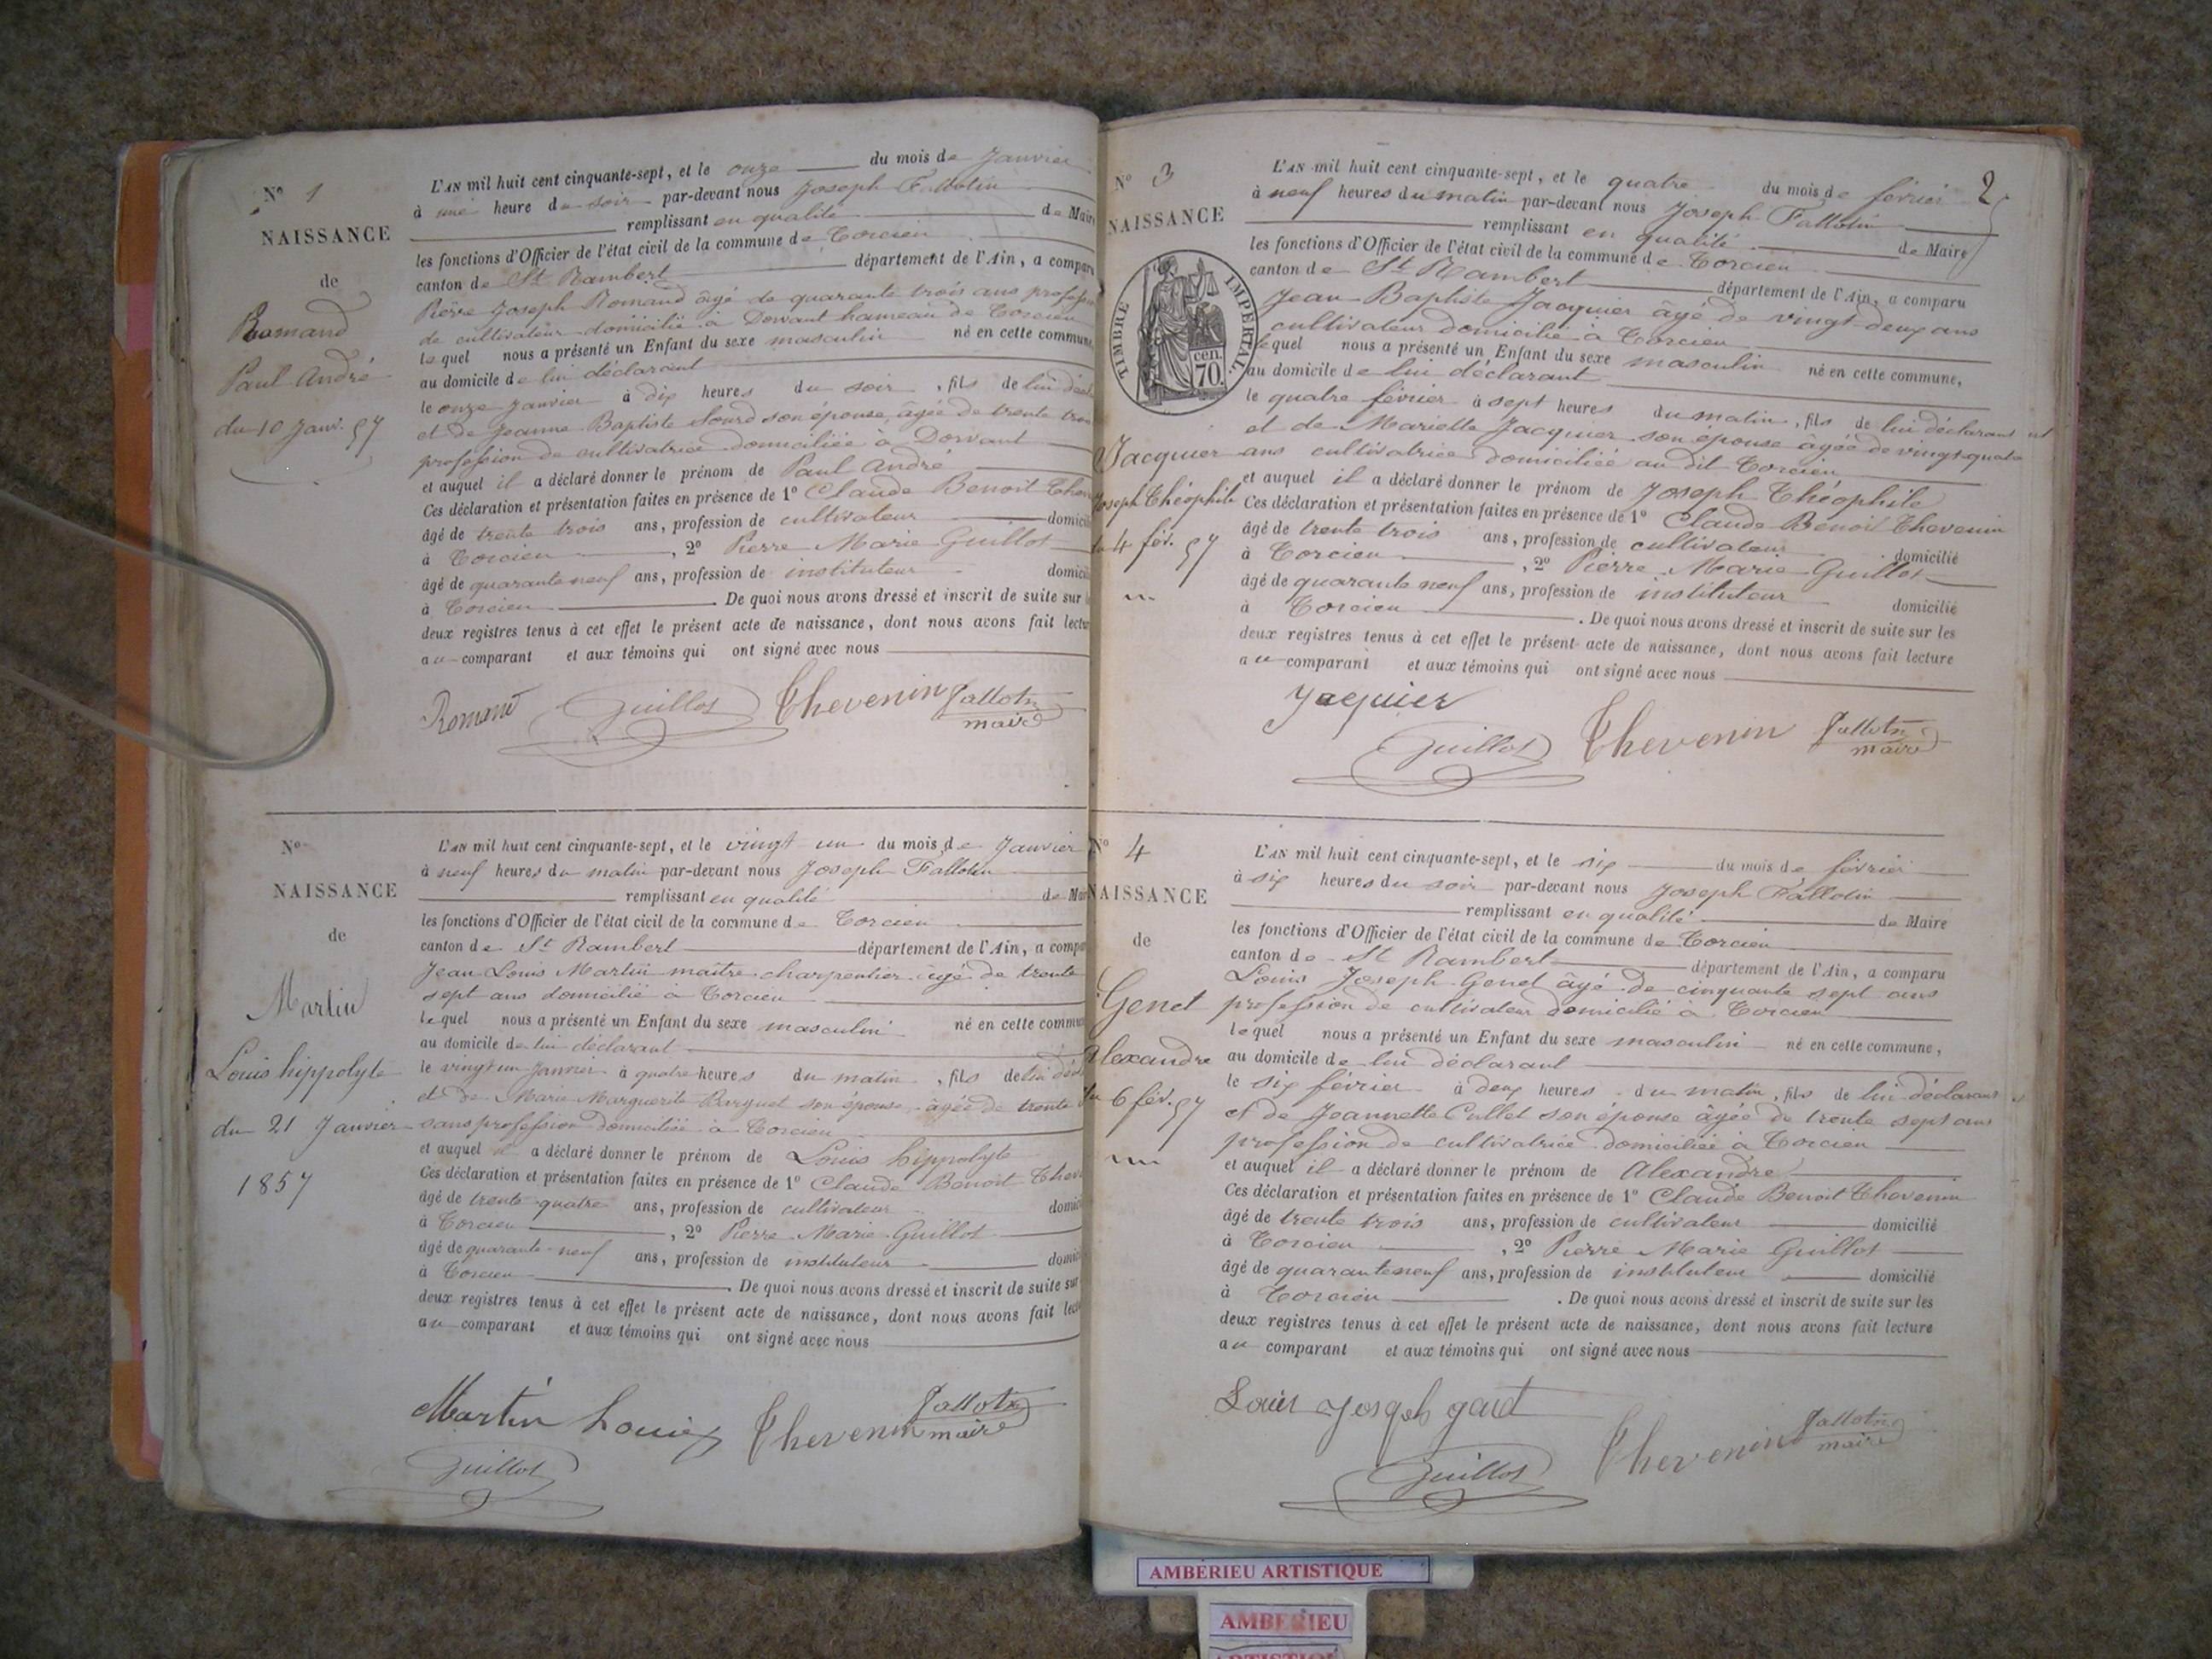 Nº 1
NAISSANCE
de
Romand
Paul André
du 10 Janv. 57
L'AN mil huit cent cinquante-sept, et le onze du mois de Janvier
à une heure du soir par-devant nous Joseph Fallotin
remplissant en qualité de Maire
les fonctions d'Officier de l'état civil de la commune de Torcieu
canton de St Rambert département de l'Ain, a comparu
Pierre Joseph Romand âgé de quarante trois ans profession
de cultivateur domicilié à Dorvant hameau de Torcieu
lequel nous a présenté un Enfant du sexe masculin né en cette commune,
au domicile de lui déclarant
le onze Janvier à dix heures du soir, fils de lui
et de Jeanne Baptiste son épouse, âgée de trente
profession de cultivatrice domiciliée à Dorvant
et auquel il a déclaré donner le prénom de Paul André
Ces déclaration et présentation faites en présence de 1º Claude Benoit
âgé de trente trois ans, profession de cultivateur
à Torcieu, 2º Pierre Marie Guillot
âgé de quarante neuf ans, profession de instituteur
à Torcieu. De quoi nous avons dressé et inscrit de suite sur
deux registres tenus à cet effet le présent acte de naissance, dont nous avons fait
au comparant et aux témoins qui ont signé avec nous
Romand Guillot Thevenin Fallotin
maire
Nº
NAISSANCE
de
Martin
Louis hippolyte
du 21 Janvier
1857
L'AN mil huit cent cinquante-sept, et le vingt un du mois de Janvier
à neuf heures du matin par-devant nous Joseph Fallotin
remplissant en qualité de
les fonctions d'Officier de l'état civil de la commune de Torcieu
canton de St Rambert département de l'Ain, a
Jean Louis Martin maître charpentier âgé de trente
sept ans domicilié à Torcieu
lequel nous a présenté un Enfant du sexe masculin né en cette
au domicile de lui déclarant
le vingt un Janvier à quatre heures du matin, fils de lui
et de Marie Marguerite son épouse âgée de trente
sans profession domiciliée à Torcieu
et auquel il a déclaré donner le prénom de Louis hippolyte
Ces déclaration et présentation faites en présence de 1º Claude Benoit
âgé de trente quatre ans, profession de cultivateur
à Torcieu, 2º Pierre Marie Guillot
âgé de quarante-neuf ans, profession de instituteur
à Torcieu. De quoi nous avons dressé et inscrit de suite sur
deux registres tenus à cet effet le présent acte de naissance, dont nous avons fait
au comparant et aux témoins qui ont signé avec nous
Martin Louis Thevenin Fallotin
maire
Guillot
2
Nº 3
NAISSANCE
TIMBRE IMPERIAL
70 cen.
Jacquier
Joseph Théophile
4 fév. 57
L'AN mil huit cent cinquante-sept, et le quatre du mois de février
à neuf heures du matin par-devant nous Joseph Fallotin
remplissant en qualité de Maire
les fonctions d'Officier de l'état civil de la commune de Torcieu
canton de St Rambert département de l'Ain, a comparu
Jean Baptiste Jacquier âgé de vingt deux ans
cultivateur domicilié à Torcieu
lequel nous a présenté un Enfant du sexe masculin né en cette commune,
au domicile de lui déclarant
le quatre février à sept heures du matin, fils de lui déclarant
et de Mariette Jacquier son épouse âgée de vingt quatre
ans cultivatrice domiciliée au dit Torcieu
et auquel il a déclaré donner le prénom de Joseph Théophile
Ces déclaration et présentation faites en présence de 1º Claude Benoit Thevenin
âgé de trente trois ans, profession de cultivateur domicilié
à Torcieu, 2º Pierre Marie Guillot
âgé de quarante neuf ans, profession de instituteur domicilié
à Torcieu. De quoi nous avons dressé et inscrit de suite sur les
deux registres tenus à cet effet le présent acte de naissance, dont nous avons fait lecture
au comparant et aux témoins qui ont signé avec nous
Jaquier
Guillot Thevenin Fallotin
maire
Nº 4
NAISSANCE
de
Genet
Alexandre
6 fév. 57
L'AN mil huit cent cinquante-sept, et le six du mois de février
à six heures du soir par-devant nous Joseph Fallotin
remplissant en qualité de Maire
les fonctions d'Officier de l'état civil de la commune de Torcieu
canton de St Rambert département de l'Ain, a comparu
Louis Joseph Genet âgé de cinquante sept ans
profession de cultivateur domicilié à Torcieu
lequel nous a présenté un Enfant du sexe masculin né en cette commune,
au domicile de lui déclarant
le six février à deux heures du matin, fils de lui déclarant
et de Jeannette Cullet son épouse âgée de trente sept ans
profession de cultivatrice domiciliée à Torcieu
et auquel il a déclaré donner le prénom de Alexandre
Ces déclaration et présentation faites en présence de 1º Claude Benoit Thevenin
âgé de trente trois ans, profession de cultivateur domicilié
à Torcieu, 2º Pierre Marie Guillot
âgé de quarante neuf ans, profession de instituteur domicilié
à Torcieu. De quoi nous avons dressé et inscrit de suite sur les
deux registres tenus à cet effet le présent acte de naissance, dont nous avons fait lecture
au comparant et aux témoins qui ont signé avec nous
Louis Joseph
Guillot Thevenin Fallotin
maire
AMBÉRIEU ARTISTIQUE
AMBERIEU
ARTISTIQUE